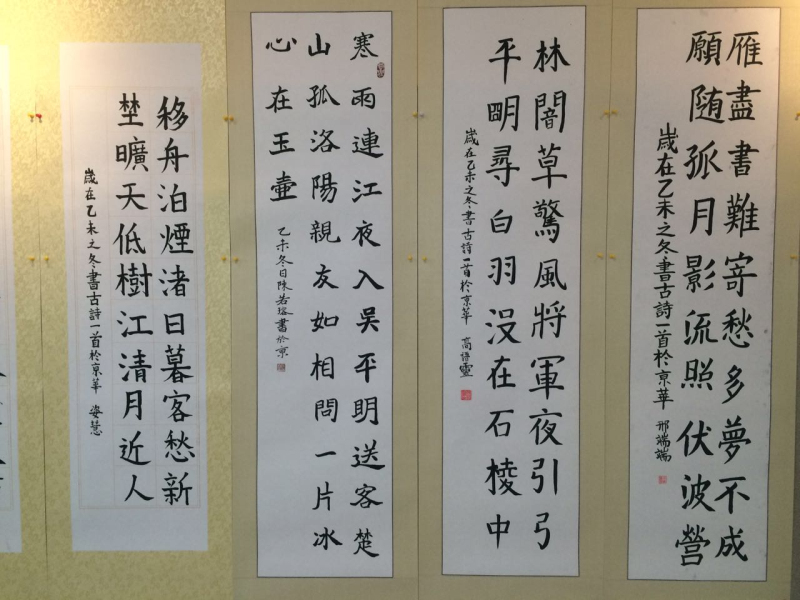 雁盡書難寄愁多夢不成
願随孤月影流照伏波營
歲在乙未之冬書古詩一首於京華 邢端端
林闇草驚風將軍夜引弓
平朙尋白羽没在石棱中
歲在乙未之冬書古詩一首於京華 高
寒雨連江夜入吳平明送客楚
山孤洛陽親友如相問一片冰
心在玉壺
乙未冬日陳若書於京
移舟泊煙渚日暮客愁新
埜曠天低樹江清月近人
歲在乙未之冬書古詩一首於京華 姿慧